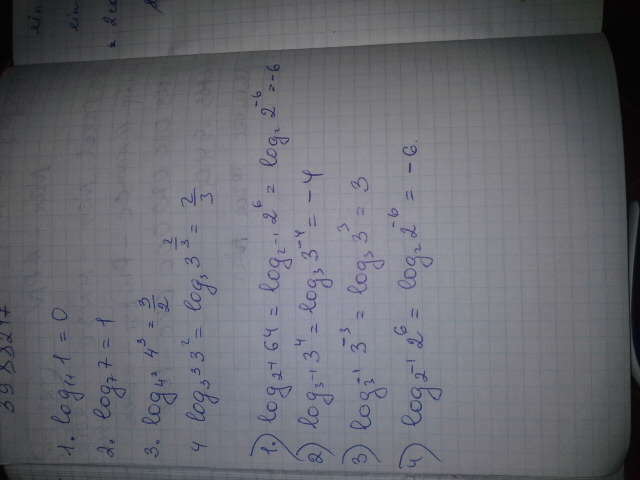 3988217
1. log₁₁ 1 = 0
2. log₇ 7 = 1
3. log₄² 4³ = 3/2
4 log₃³ 3² = log₃ 3^(2/3) = 2/3
1.) log₂⁻¹ 64 = log₂⁻¹ 2⁶ = log₂ 2⁻⁶ = -6
2) log₃⁻¹ 3⁴ = log₃ 3⁻⁴ = -4
3) log₃⁻¹ 3⁻³ = log₃ 3³ = 3
4) log₂⁻¹ 2⁶ = log₂ 2⁻⁶ = -6.